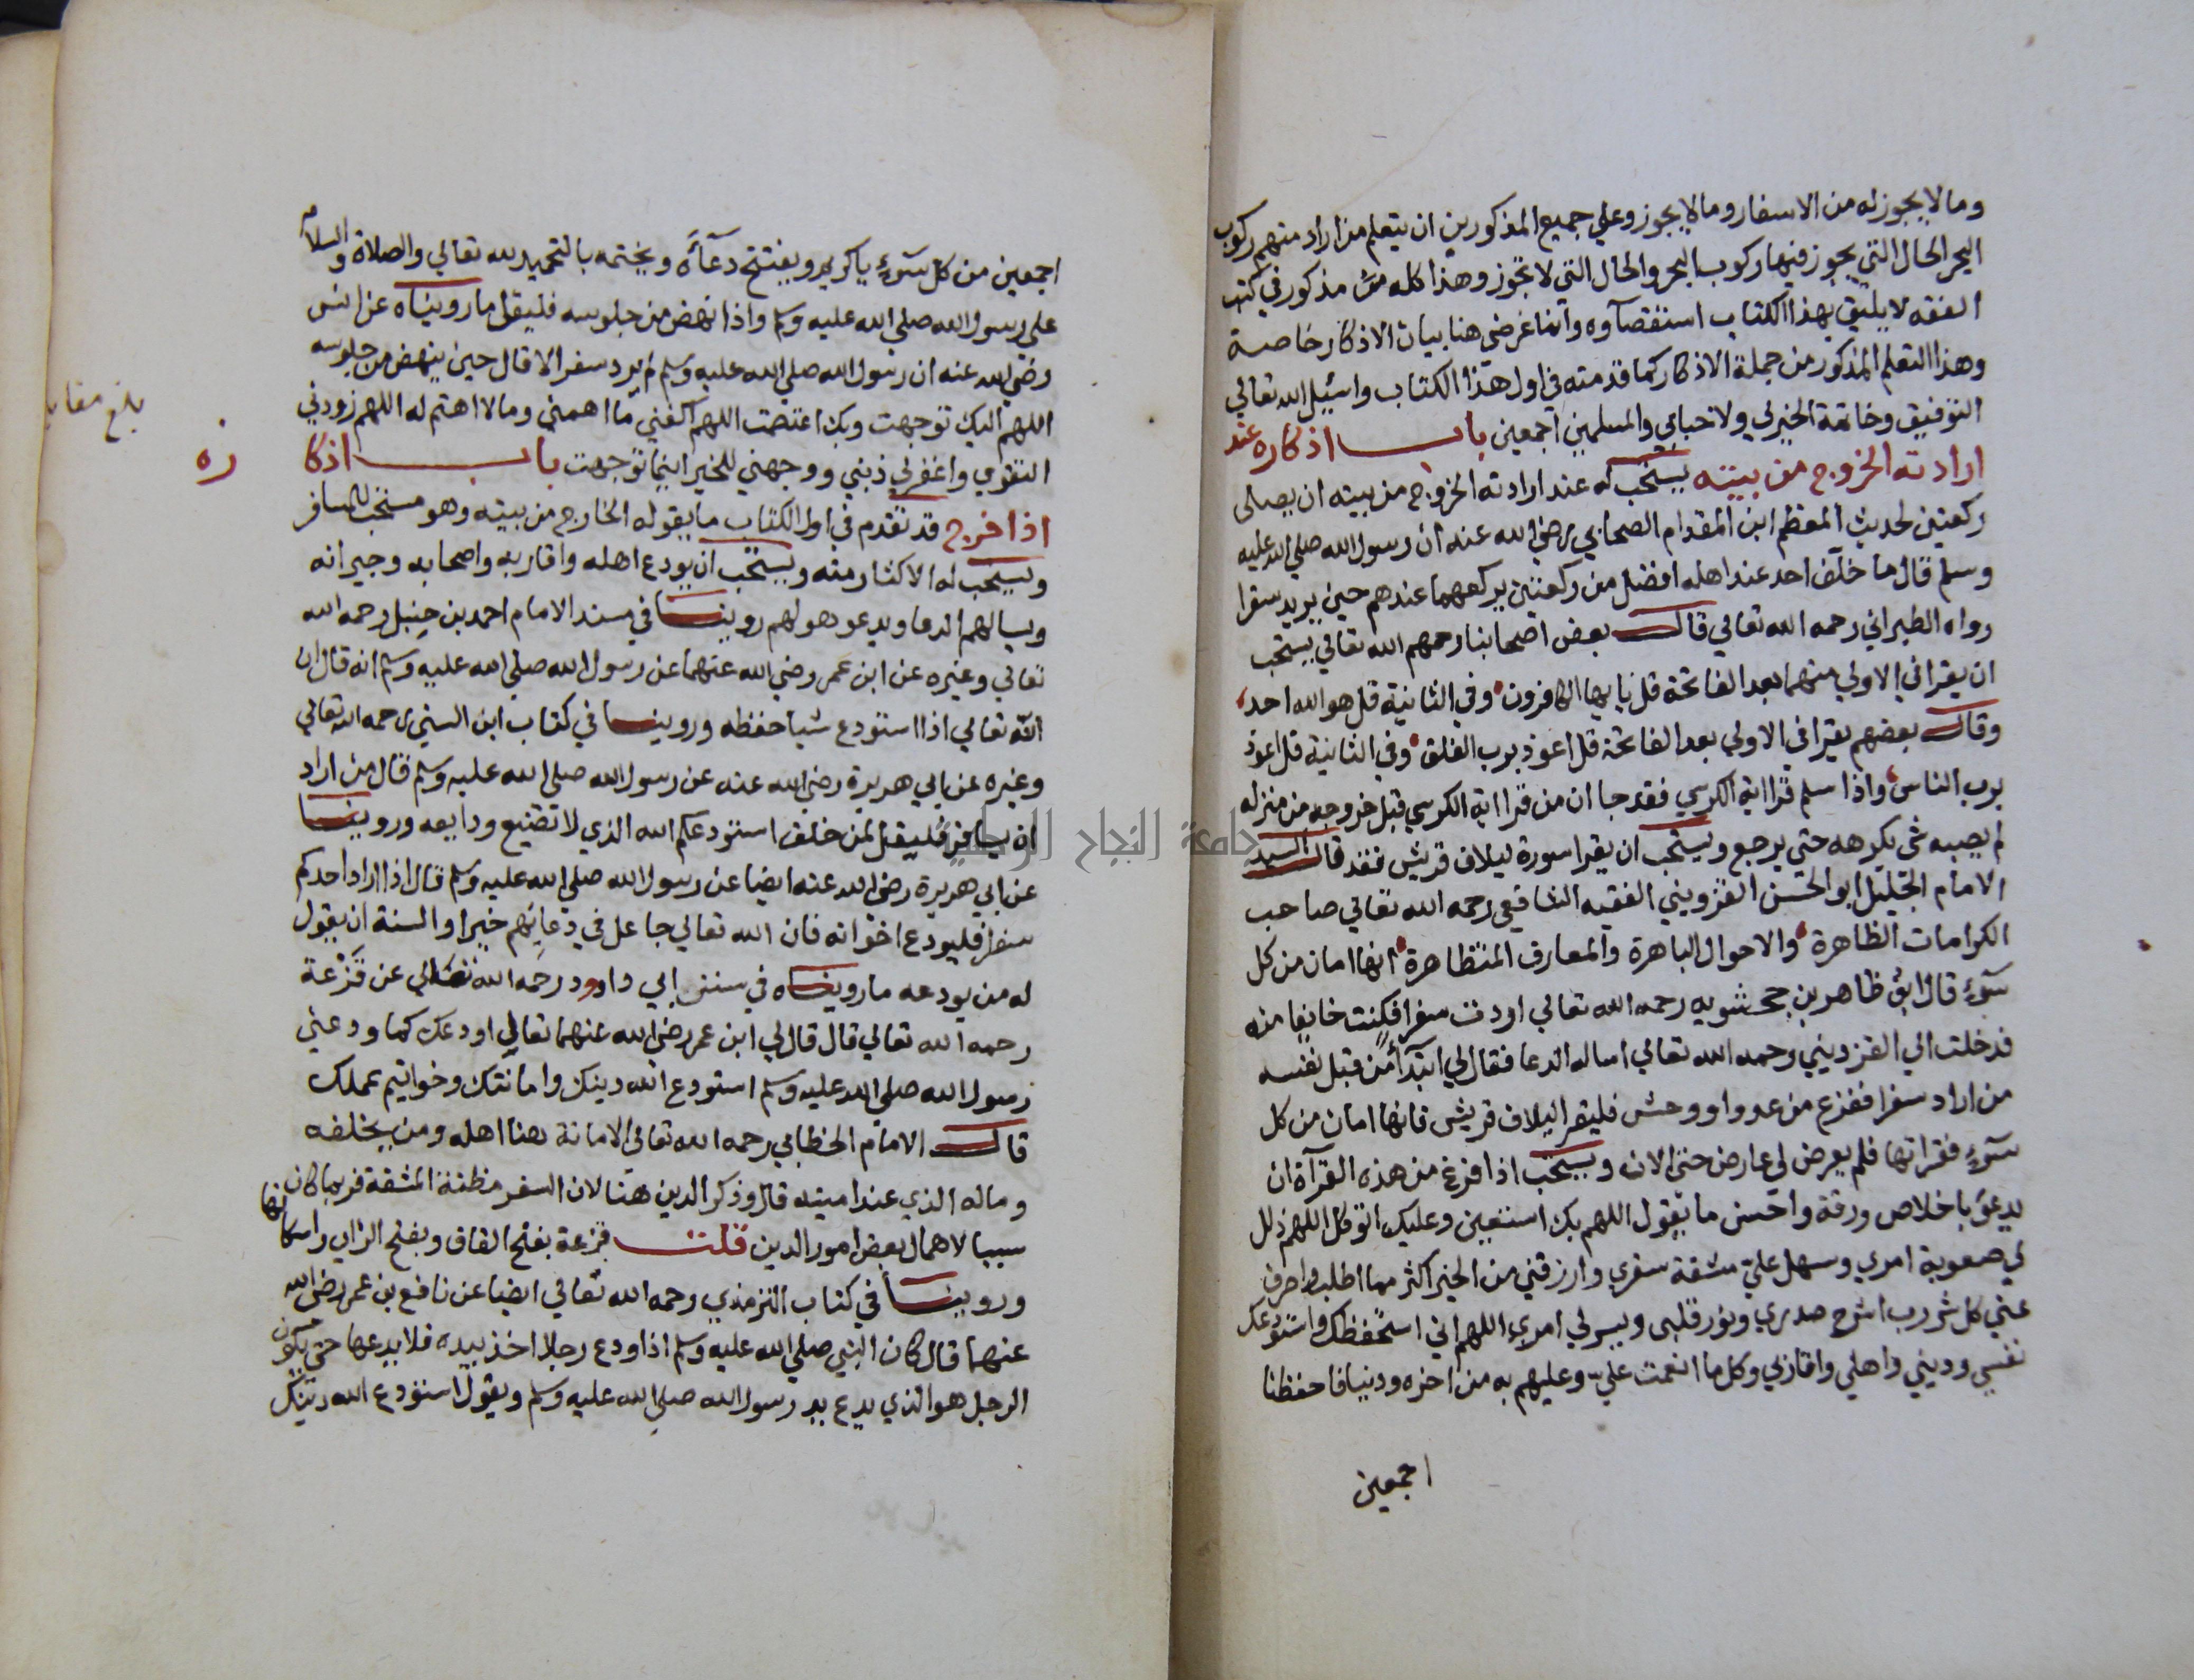 وما لا يجوز له من الاسفار وما لا يجوز وعلي جميع المذكورين ان يتعلم من اراد منهم ركوب
البحر الحال التي يجوز فيها ركوب البحر والحال التي لا تجوز وهذا كله مذكور في كتب
الفقه لا يليق بهذا الكتاب استقصآوه وانما غرضي هنا بيان الاذكار خاصة
وهذا التعلم المذكور من جملة الاذكار كما قدمته في اول هذا الكتاب واسئل الله تعالي
التوفيق وخاتمة الخير لي ولاحبائي والمسلمين اجمعين باب اذكاره عند
ارادته الخروج من بيته يستحب له عند ارادته الخروج من بيته ان يصلى
ركعتين لحديث المعظم ابن المقدام الصحابي رضي الله عنه ان رسول الله صلي الله عليه
وسلم قال ما خلف احد عند اهله افضل من ركعتين يركعهما عندهم حين يريد سفرا
رواه الطبراني رحمه الله تعالي قال بعض اصحابنا رحمهم الله تعالي يستحب
ان يقرا في الاولي منهما بعد الفاتحة قل يايها الكافرون وفي الثانية قل هو الله احد
وقال بعضهم يقرا في الاولي بعد الفاتحة قل اعوذ برب الفلق وفي الثانية قل اعوذ
برب الناس واذا سلم قرا اية الكرسي فقد جا ان من قرا اية الكرسي قبل خروجه من منزله
لم يصبه شي يكرهه حتي يرجع ويستحب ان يقرا سورة ليلاف قريش فقد قال السيد
الامام الجليل ابو الحسن القزويني الفقيه الشافعي رحمه الله تعالي صاحب
الكرامات الظاهرة والاحوال الباهرة والمعارف المتظاهرة انها امان من كل
سوء قال ابو طاهر بن جحشويه رحمه الله تعالي اردت سفرا فكنت خايفا منه
فدخلت الي القزويني رحمه الله تعالي اساله الدعا فقال لي ابتدآ من قبل نفسه
من اراد سفرا ففزع من عدو او وحش فليقرا ليلاف قريش فانها امان من كل
سوء فقراتها فلم يعرض لي عارض حتي الان ويستحب اذا فرغ من هذه القرآة ان
يدعو باخلاص ورقة واحسن ما يقول اللهم بك استعين وعليك اتوكل اللهم ذلل
لي صعوبة امري وسهل علي مشقة سفري وارزقني من الخير اكثر مما اطلب واصرف
عني كل شر رب اشرح صدري ونور قلبي ويسر لي امري اللهم اني استحفظك واستودعك
نفسي وديني واهلي واقاربي وكل ما انعمت علي وعليهم به من اخره ودنيا فاحفظنا
اجمعين
اجمعين من كل سوء يا كريم ويفتتح دعآءه ويختمه بالتحميد لله تعالي والصلاة والسلام
علي رسول الله صلي الله عليه وسلم واذا نهض من جلوسه فليقل ما رويناه عن انس
رضي الله عنه ان رسول الله صلي الله عليه وسلم لم يرد سفرا الا قال حين ينهض من جلوسه
اللهم اليك توجهت وبك اعتصمت اللهم اكفني ما اهمني وما لا اهتم له اللهم زودني
التقوي واغفر لي ذنبي ووجهني للخير اينما توجهت باب اذكاره
بلغ مقابلة
اذا خرج قد تقدم في اول الكتاب ما يقوله الخارج من بيته وهو مستحب للمسافر
ويستحب له الاكثار منه ويستحب ان يودع اهله واقاربه واصحابه وجيرانه
ويسالهم الدعا ويدعو هو لهم روينا في مسند الامام احمد بن حنبل رحمه الله
تعالي وغيره عن ابن عمر رضي الله عنهما عن رسول الله صلي الله عليه وسلم انه قال ان
الله تعالي اذا استودع شيا حفظه وروينا في كتاب ابن السني رحمه الله تعالي
وغيره عن ابي هريرة رضي الله عنه عن رسول الله صلي الله عليه وسلم قال من اراد
ان يسافر فليقل لمن خلف استودعكم الله الذي لا تضيع ودايعه وروينا
عن ابي هريرة رضي الله عنه ايضا عن رسول الله صلي الله عليه وسلم قال اذا اراد احدكم
سفرا فليودع اخوانه فان الله تعالي جاعل في دعائهم خيرا والسنة ان يقول
له من يودعه ما رويناه في سنن ابي داوود رحمه الله تعالي عن قزعة
رحمه الله تعالي قال قال لي ابن عمر رضي الله عنهما تعالي اودعك كما ودعني
رسول الله صلي الله عليه وسلم استودع الله دينك وامانتك وخواتيم عملك
قال الامام الخطابي رحمه الله تعالي الامانة هنا اهله ومن يخلفه
وماله الذي عند امينه قال وذكر الدين هنا لان السفر مظنة المشقة فربما كان
سببا لاهمال بعض امور الدين قلت قزعة بفتح القاف وبفتح الزاي واسكانها
وروينا في كتاب الترمذي رحمه الله تعالي ايضا عن نافع بن عمر رضي الله
عنهما قال كان النبي صلي الله عليه وسلم اذا ودع رجلا اخذ بيده فلا يدعها حتي يكون
الرجل هو الذي يدع يد رسول الله صلي الله عليه وسلم ويقول استودع الله دينك
جامعة النجاح الوطنية